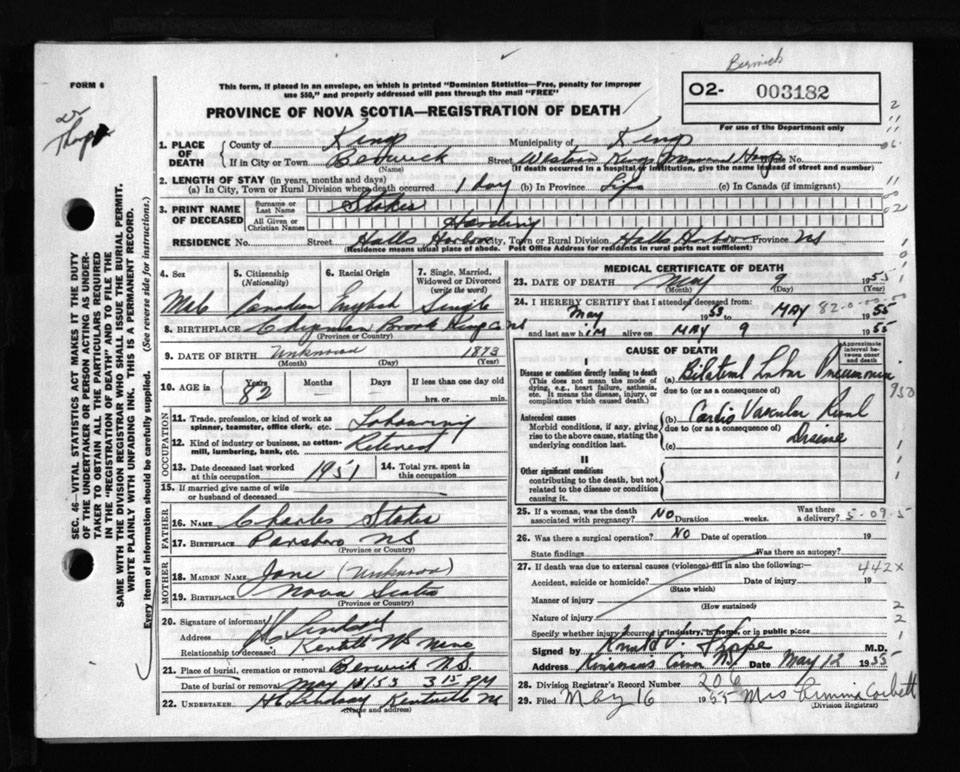 Berwick
FORM 6
This form, if placed in an envelope, on which is printed "Dominion Statistics—Free, penalty for improper
use $50," and properly addressed will pass through the mail "FREE"
O2- 003182
For use of the Department only
PROVINCE OF NOVA SCOTIA—REGISTRATION OF DEATH
SEC. 46—VITAL STATISTICS ACT MAKES IT THE DUTY
OF THE UNDERTAKER OR PERSON ACTING AS UNDER-
TAKER TO OBTAIN ALL THE PARTICULARS REQUIRED
IN THE "REGISTRATION OF DEATH" AND TO FILE THE
SAME WITH THE DIVISION REGISTRAR WHO SHALL ISSUE THE BURIAL PERMIT.
WRITE PLAINLY WITH UNFADING INK. THIS IS A PERMANENT RECORD.
Every item of information should be carefully supplied. (See reverse side for instructions.)
1. PLACE OF DEATH
County of Kings Municipality of Kings
If in City or Town Berwick Street Western Kings Memorial No.
(Name) (If death occurred in a hospital or institution, give the name instead of street and number)
2. LENGTH OF STAY (in years, months and days)
(a) In City, Town or Rural Division where death occurred 1 day (b) In Province Life (c) In Canada (if immigrant)
3. PRINT NAME OF DECEASED
Surname or Last Name Stokes
All Given or Christian Names Harding
RESIDENCE No. Street Halls Harbour City, Town or Rural Division Halls Harbour Province NS
(Residence means usual place of abode. Post Office Address for residents in rural parts not sufficient)
4. Sex Male
5. Citizenship (Nationality) Canadian
6. Racial Origin English
7. Single, Married, Widowed or Divorced (write the word) Single
8. BIRTHPLACE Chipman Brook Kings Co NS
(Province or Country)
9. DATE OF BIRTH Unknown 1873
(Month) (Day) (Year)
10. AGE in Years 82 Months — Days If less than one day old
hrs. or min.
OCCUPATION
11. Trade, profession, or kind of work as
spinner, teamster, office clerk, etc. Labouring
12. Kind of industry or business, as cotton-
mill, lumbering, bank, etc. Retired
13. Date deceased last worked at this occupation 1951
14. Total yrs. spent in this occupation
15. If married give name of wife
or husband of deceased
FATHER
16. NAME Charles Stokes
17. BIRTHPLACE Parsboro NS
(Province or Country)
MOTHER
18. MAIDEN NAME Jane (Unknown)
19. BIRTHPLACE Nova Scotia
(Province or Country)
20. Signature of informant H Lindsay
Address Kentville NS
Relationship to deceased None
21. Place of burial, cremation or removal Berwick NS.
Date of burial or removal May 3 15 PM
22. UNDERTAKER H Lindsay Kentville NS
(Name and address)
MEDICAL CERTIFICATE OF DEATH
23. DATE OF DEATH May 9 1955
(Month) (Day) (Year)
24. I HEREBY CERTIFY that I attended deceased from:
May 1953 to MAY 1955
and last saw him alive on MAY 9 1955
CAUSE OF DEATH
Approximate interval between onset and death
I
Disease or condition directly leading to death
(This does not mean the mode of
dying, e.g., heart failure, asthenia,
etc. It means the disease, injury, or
complication which caused death.)
(a) Bilateral Lobar Pneumonia
due to (or as a consequence of)
Antecedent causes
Morbid conditions, if any, giving
rise to the above cause, stating the
underlying condition last.
(b) Cardio Vascular Renal
due to (or as a consequence of) Disease
(c)
II
Other significant conditions
contributing to the death, but not
related to the disease or condition
causing it.
25. If a woman, was the death
associated with pregnancy? NO Duration weeks. Was there a delivery?
26. Was there a surgical operation? NO Date of operation 19
State findings Was there an autopsy?
27. If death was due to external causes (violence) fill in also the following:—
442X
Accident, suicide or homicide? Date of injury 19
(State which)
Manner of injury
(How sustained)
Nature of injury
Specify whether injury occurred in industry, in home, or in public place
Signed by M.D.
Address Date May 12 1955
28. Division Registrar's Record Number 206
29. Filed May 16 1955 Mrs Corbett
(Division Registrar)